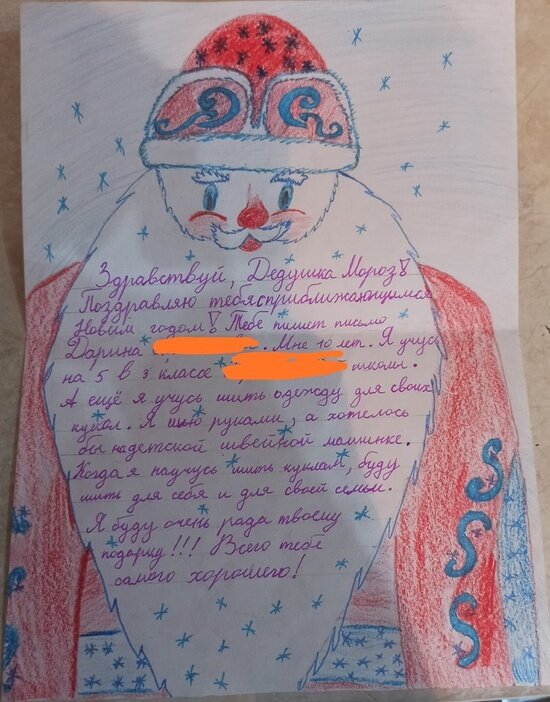 Здравствуй, Дедушка Мороз!
Поздравляю тебя с приближающимся
Новым годом! Тебе пишет письмо
Дарина . Мне 10 лет. Я учусь
на 5 в 3 классе школы.
А ещё я учусь шить одежду для своих
кукол. Я шью руками, а хотелось
бы на детской швейной машинке.
Когда я научусь шить куклам, буду
шить для себя и для своей семьи.
Я буду очень рада твоему
подарку!!! Всего тебе
самого хорошего!